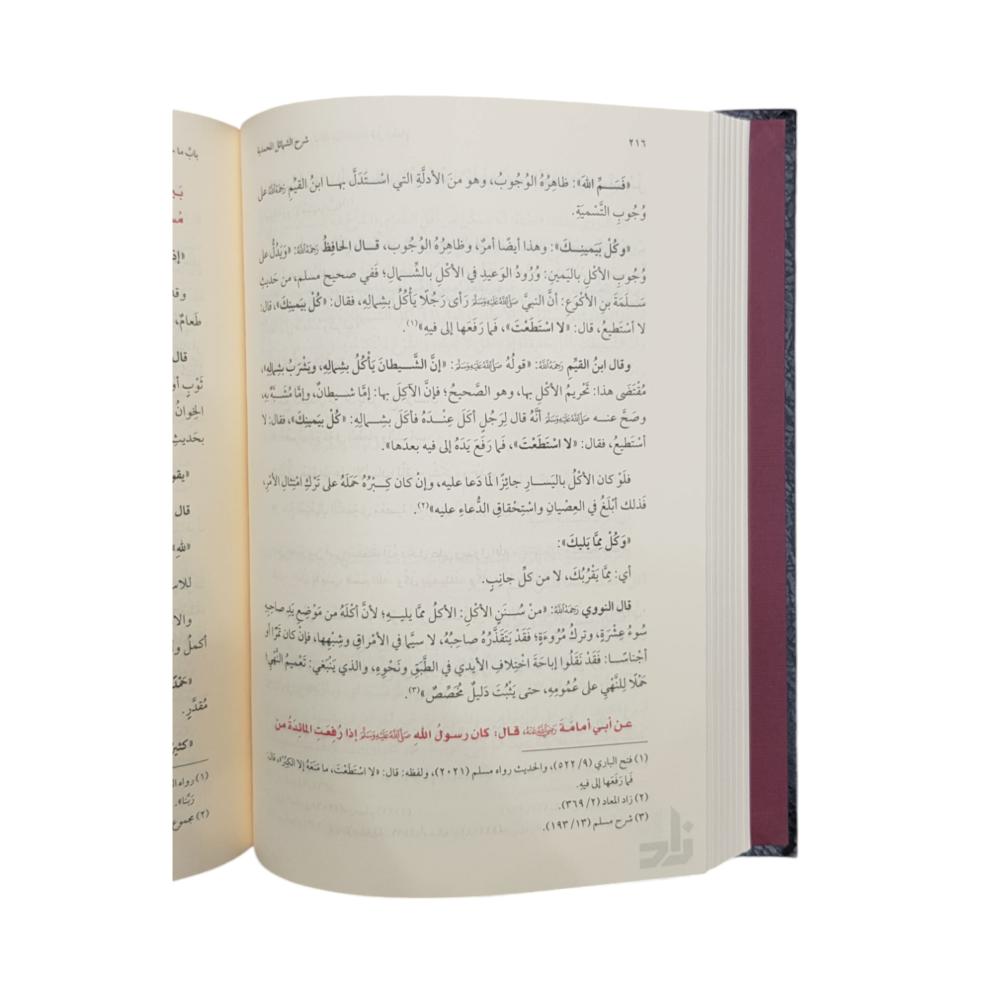 ٢١٦
شرح الشمائل المحمدية
«فَسَمِّ اللهَ»: ظاهِرُهُ الوُجُوبُ، وهو منَ الأدلَّةِ التي اسْتَدَلَّ بها ابنُ القيِّمِ رَحِمَهُ اللهُ على
وُجُوبِ التَّسْمِيَةِ.
«وَكُلْ بيَمينِكَ»: وهذا أيضًا أمرٌ، وظاهِرُهُ الوُجُوب، قال الحافِظُ رَحِمَهُ اللهُ: «وَيَدُلُّ على
وُجُوبِ الأكْلِ باليَمينِ: وُرُودُ الوَعيدِ في الأكْلِ بالشِّمالِ؛ فَفي صحيح مسلم، من حَديثِ
سَلَمَةَ بنِ الأكْوَعِ: أنَّ النبيَّ صَلَّى اللهُ عَلَيْهِ وَسَلَّمَ رَأى رَجُلًا يَأْكُلُ بشِمالِهِ، فقال: «كُلْ بيَمينِكَ»، قال:
لا أسْتَطيعُ، قال: «لا اسْتَطَعْتَ»، فَما رَفَعَها إلى فيهِ»(١).
وقال ابنُ القيِّمِ رَحِمَهُ اللهُ: «قولُهُ صَلَّى اللهُ عَلَيْهِ وَسَلَّمَ: «إنَّ الشَّيطانَ يَأْكُلُ بشِمالِهِ، ويَشْرَبُ بشِمالِهِ»،
مُقْتَضَى هذا: تَحْريمُ الأكْلِ بها، وهو الصَّحيحُ؛ فإنَّ الآكِلَ بها: إمَّا شيطانٌ، وإمَّا مُشَبَّهٌ بِهِ،
وصَحَّ عنه صَلَّى اللهُ عَلَيْهِ وَسَلَّمَ أنَّهُ قال لِرَجُلٍ أكَلَ عِنْدَهُ فأكَلَ بشِمالِهِ: «كُلْ بيَمينِكَ»، فقال: لا
أسْتَطيعُ، فقال: «لا اسْتَطَعْتَ»، فَما رَفَعَ يَدَهُ إلى فيه بعدَها».
فلَوْ كان الأكْلُ باليَسارِ جائِزًا لَما دَعا عليه، وإنْ كان كِبْرُهُ حَمَلَهُ على تَرْكِ امْتِثالِ الأمْرِ،
فَذلك أبْلَغُ في العِصْيانِ واسْتِحْقاقِ الدُّعاءِ عليه»(٢).
«وَكُلْ مِمَّا يَليكَ»:
أي: مِمَّا يَقْرُبُكَ، لا من كلِّ جانِبٍ.
قال النووي رَحِمَهُ اللهُ: «منْ سُنَنِ الأكْلِ: الأكلُ ممَّا يليهِ؛ لأنَّ أكْلَهُ من مَوْضِعِ يَدِ صاحِبِهِ
سُوءُ عِشْرَةٍ، وتركُ مُرُوءَةٍ؛ فقَدْ يَتَقَذَّرُهُ صاحِبُهُ، لا سيَّما في الأمْراقِ وشِبْهِها، فإنْ كان تَمْرًا أو
أجْناسًا: فَقَدْ نَقَلُوا إباحَةَ اخْتِلافِ الأيدي في الطَّبَقِ ونَحْوِهِ، والذي يَنْبَغي: تَعْميمُ النَّهْيِ؛
حَمْلًا لِلنَّهْيِ على عُمُومِهِ، حتى يَثْبُتَ دَليلٌ مُخَصِّصٌ»(٣).
عن أبي أمامَةَ رَضِيَ اللهُ عَنْهُ، قال: كان رسولُ اللهِ صَلَّى اللهُ عَلَيْهِ وَسَلَّمَ إذا رُفِعَتِ المائدَةُ من
(١) فتح الباري (٩/ ٥٢٢)، والحديث رواه مسلم (٢٠٢١)، ولفظه: قال: «لا اسْتَطَعْتَ، ما مَنَعَهُ إلا الكِبْرُ»، قال:
فَما رَفَعَها إلى فيهِ.
(٢) زاد المعاد (٢/ ٣٦٩).
(٣) شرح مسلم (١٣/ ١٩٣).
زاد
بابُ ما
«إذ
وقد
طَعامٌ،
قال
ثَوْبٍ أو
الخوانُ
بحَديثِ
«يقو
قال
«للهِ
للاسـ
والا
أكملُ و
«حَمْدًا
مُقَدَّرٍ.
«كثيرً
(١) رواه
رَبَّنا».
(٢) مجموع